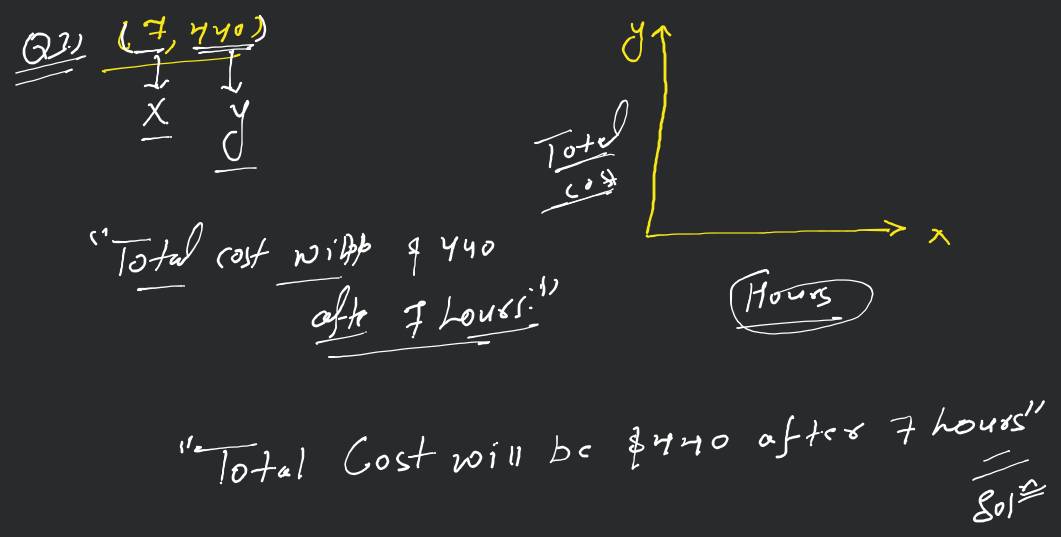 Q3) (7, 440)
x y
"Total cost will $ 440
afte 7 hours."
y
Total
cost
x
Hours
"Total Cost will be $440 after 7 hours"
Solⁿ